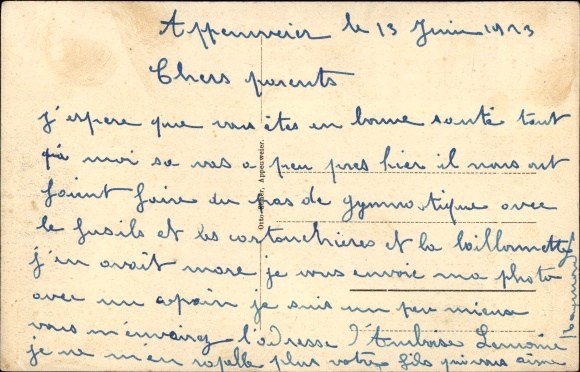 Appenweier le 13 Juin 1923
Chers parents
j'espere que vous êtes en bonne santé tant
qu'a moi sa vas a peu pres hier il nous ont
faient faire du pas de gymnastique avec
le fusils et les cartouchieres et la baillonnette
j'en avait mare je vous envoie ma photo
avec un copain je suis un peu mieux
vous m'envairez l'adresse d'Ambroise Lemoine
je ne m'en rapelle plus votre fils qui vous aime
Raymond
Otto Appenweier.